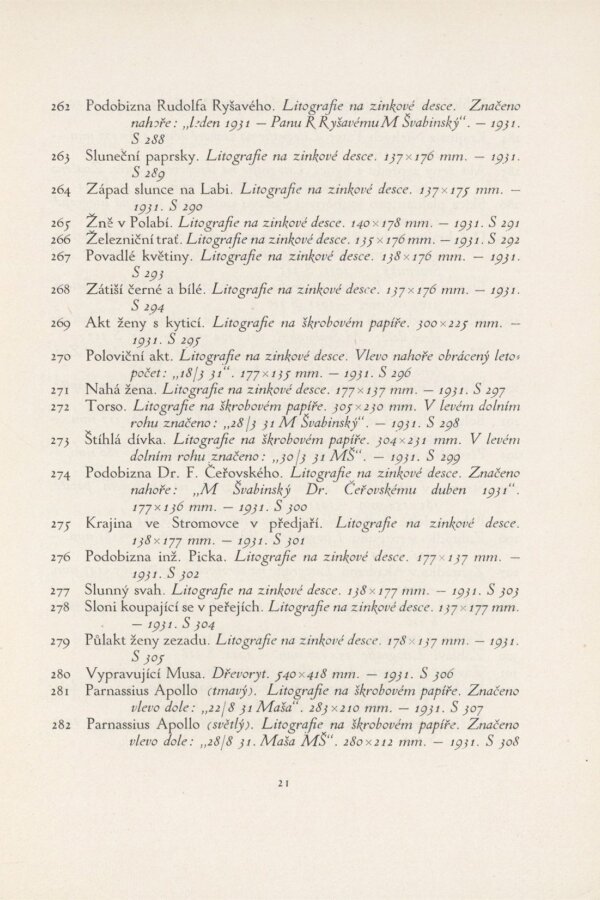 262 Podobizna Rudolfa Ryšavého. Litografie na zinkové desce. Značeno
nahoře: „leden 1931 — Panu R Ryšavému M Švabinský“. — 1931.
S 288
263 Sluneční paprsky. Litografie na zinkové desce. 137×176 mm. — 1931.
S 289
264 Západ slunce na Labi. Litografie na zinkové desce. 137×175 mm. —
1931. S 290
265 Žně v Polabí. Litografie na zinkové desce. 140×178 mm. — 1931. S 291
266 Železniční trať. Litografie na zinkové desce. 135×176 mm. — 1931. S 292
267 Povadlé květiny. Litografie na zinkové desce. 138×176 mm. — 1931.
S 293
268 Zátiší černé a bílé. Litografie na zinkové desce. 137×176 mm. — 1931.
S 294
269 Akt ženy s kyticí. Litografie na škrobovém papíře. 300×225 mm. —
1931. S 295
270 Poloviční akt. Litografie na zinkové desce. Vlevo nahoře obrácený leto-
počet: „18/3 31“. 177×135 mm. — 1931. S 296
271 Nahá žena. Litografie na zinkové desce. 177×137 mm. — 1931. S 297
272 Torso. Litografie na škrobovém papíře. 305×230 mm. V levém dolním
rohu značeno: „28/3 31 M Švabinský“. — 1931. S 298
273 Štíhlá dívka. Litografie na škrobovém papíře. 304×231 mm. V levém
dolním rohu značeno: „30/3 31 MŠ“. — 1931. S 299
274 Podobizna Dr. F. Čeřovského. Litografie na zinkové desce. Značeno
nahoře: „M Švabinský Dr. Čeřovskému duben 1931“.
177×136 mm. — 1931. S 300
275 Krajina ve Stromovce v předjaří. Litografie na zinkové desce.
138×177 mm. — 1931. S 301
276 Podobizna inž. Picka. Litografie na zinkové desce. 177×137 mm. —
1931. S 302
277 Slunný svah. Litografie na zinkové desce. 138×177 mm. — 1931. S 303
278 Sloni koupající se v peřejích. Litografie na zinkové desce. 137×177 mm.
— 1931. S 304
279 Půlakt ženy zezadu. Litografie na zinkové desce. 178×137 mm. — 1931.
S 305
280 Vypravující Musa. Dřevoryt. 540×418 mm. — 1931. S 306
281 Parnassius Apollo (tmavý). Litografie na škrobovém papíře. Značeno
vlevo dole: „22/8 31 Maša“. 283×210 mm. — 1931. S 307
282 Parnassius Apollo (světlý). Litografie na škrobovém papíře. Značeno
vlevo dole: „28/8 31. Maša MŠ“. 280×212 mm. — 1931. S 308
21